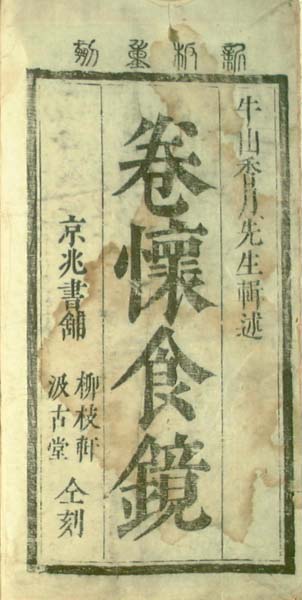 新板重
牛山香月先生輯述
卷懷食鏡
京兆書舖
柳枝軒
汲古堂
仝刻